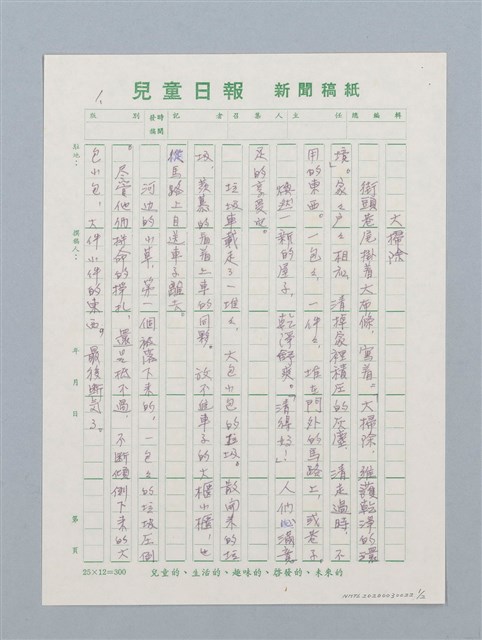 兒童日報 新聞稿紙
版別 發時稿間 記者 召集人 主任 總編輯
駐地： 撰稿人： 年 月 日 第 頁
大掃除
街頭巷尾掛着大布條，寫着：「大掃除，維護乾淨的環
境」。家々户々相放，清掉家裡積压的灰塵，清走過時，不
用的東西。一包々，一件々，堆在門外的馬路上，或巷子。
煥然一新的屋子，乾淨舒爽。「清得好！」人們心滿意
足的享受。
垃圾車載走了一堆々，大包小包的垃圾。散開來的垃
圾，羡慕的看着上車的同夥。放不進車子的大櫃小櫃，也
從馬路上目送車子離去。
河边的小草，第一個被落下來的，一包々的垃圾压倒
。尽管他們拼命的掙扎，還是抵不過，不断傾倒下來的大
包小包，大件小件的東西。最後断气了。
25×12=300 兒童的、生活的、趣味的、啓發的、未來的
NMTL20200030022 1/2